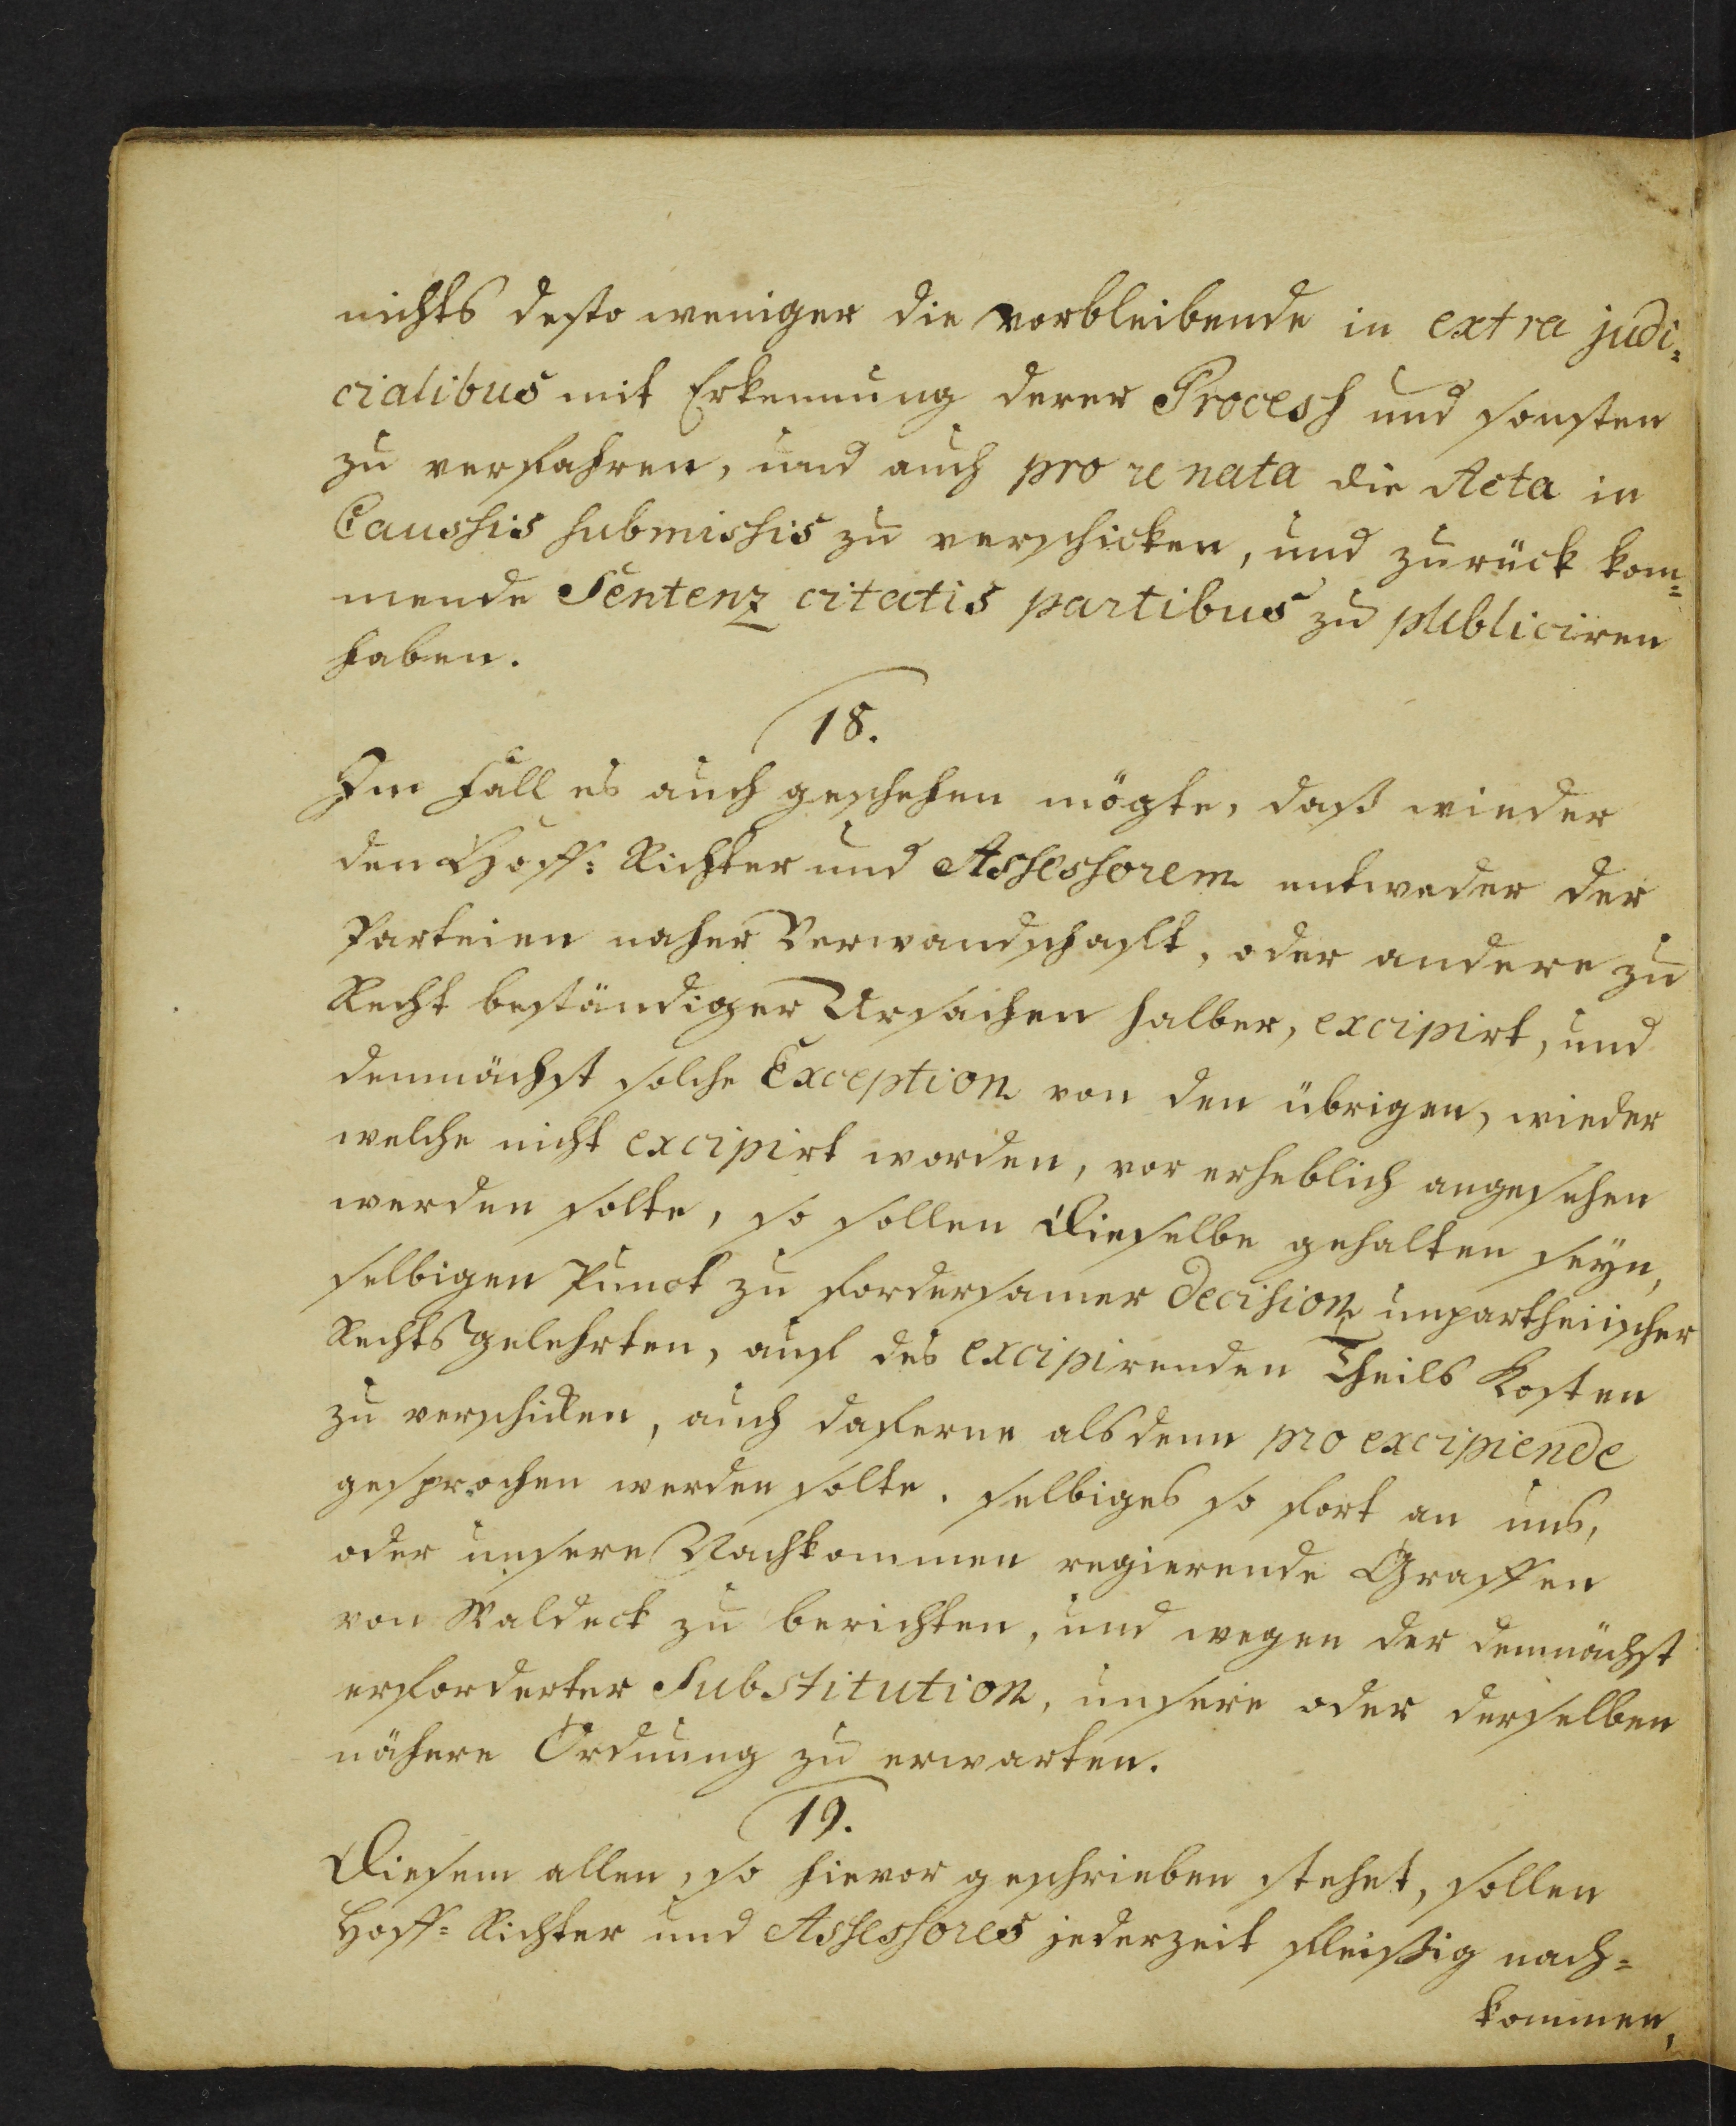 nichts desto weniger die vorbleibende in extra judi=
cialibus mit Erkennung derer Process und sonsten
zu verfahren, und auch pro re nata die Acta in
Caussis submissis zu verschicken, und zurück kom=
mende Sentenz citatis partibus zu publiciren
haben.
18.
Im Fall es auch geschehen mögte, daß wieder
den Hoff= Richter und Assessorem entweder der
Parteien naher Verwandschafft, oder andere zu
Recht beständiger Ursachen halber, excipirt, und
demnächst solche Exception von den übrigen, wieder
welche nicht excipirt worden, vor erheblich angesehen
werden solte, so sollen dieselbe gehalten seyn,
selbigen Punct zu fordersamer decision unpartheiischer
Rechtsgelehrten, auf des excipirenden Theils Kosten
zu verschicken, auch daferne alsdenn pro excipiende
gesprochen werden solte, selbiges so fort an uns,
oder unsere Nachkommen regierende Graffen
von Waldeck zu berichten, und wegen der demnächst
erforderter Substitution, unsere oder derselben
nähere Ordnung zu erwarten.
19.
Diesem allen, so hievor geschrieben stehet, sollen
Hoff= Richter und Assessores jederzeit fleißig nach=
kommen,